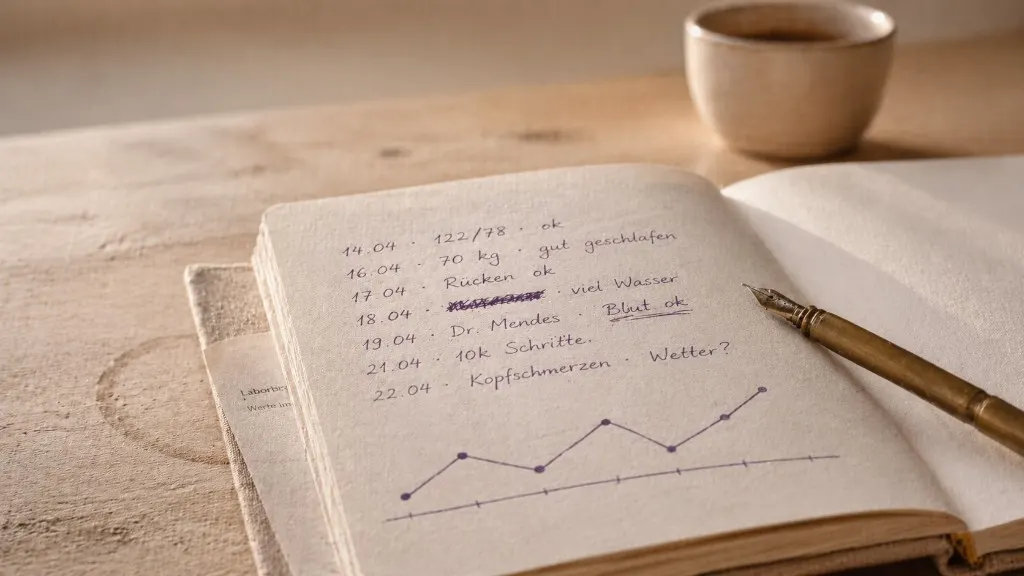 14.04 · 122/78 · ok
16.04 · 70 kg · gut geschlafen
17.04 · Rücken ok
18.04 · · viel Wasser
19.04 · Dr. Mendes · Blut ok
21.04 · 10k Schritte.
22.04 · Kopfschmerzen · Wetter?
Werte im